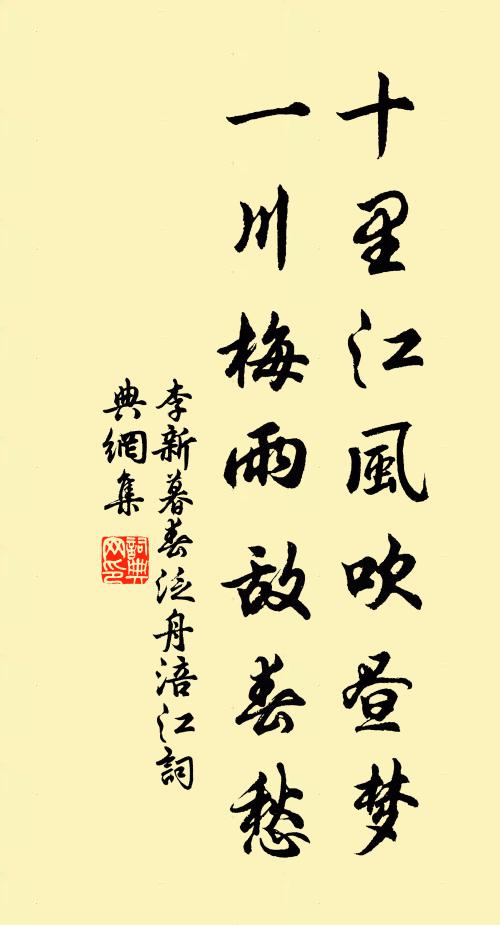 十里江風吹昼梦
一川梅雨敌春愁
李新暮春泛舟涪江詞
典網集
詞典
网印